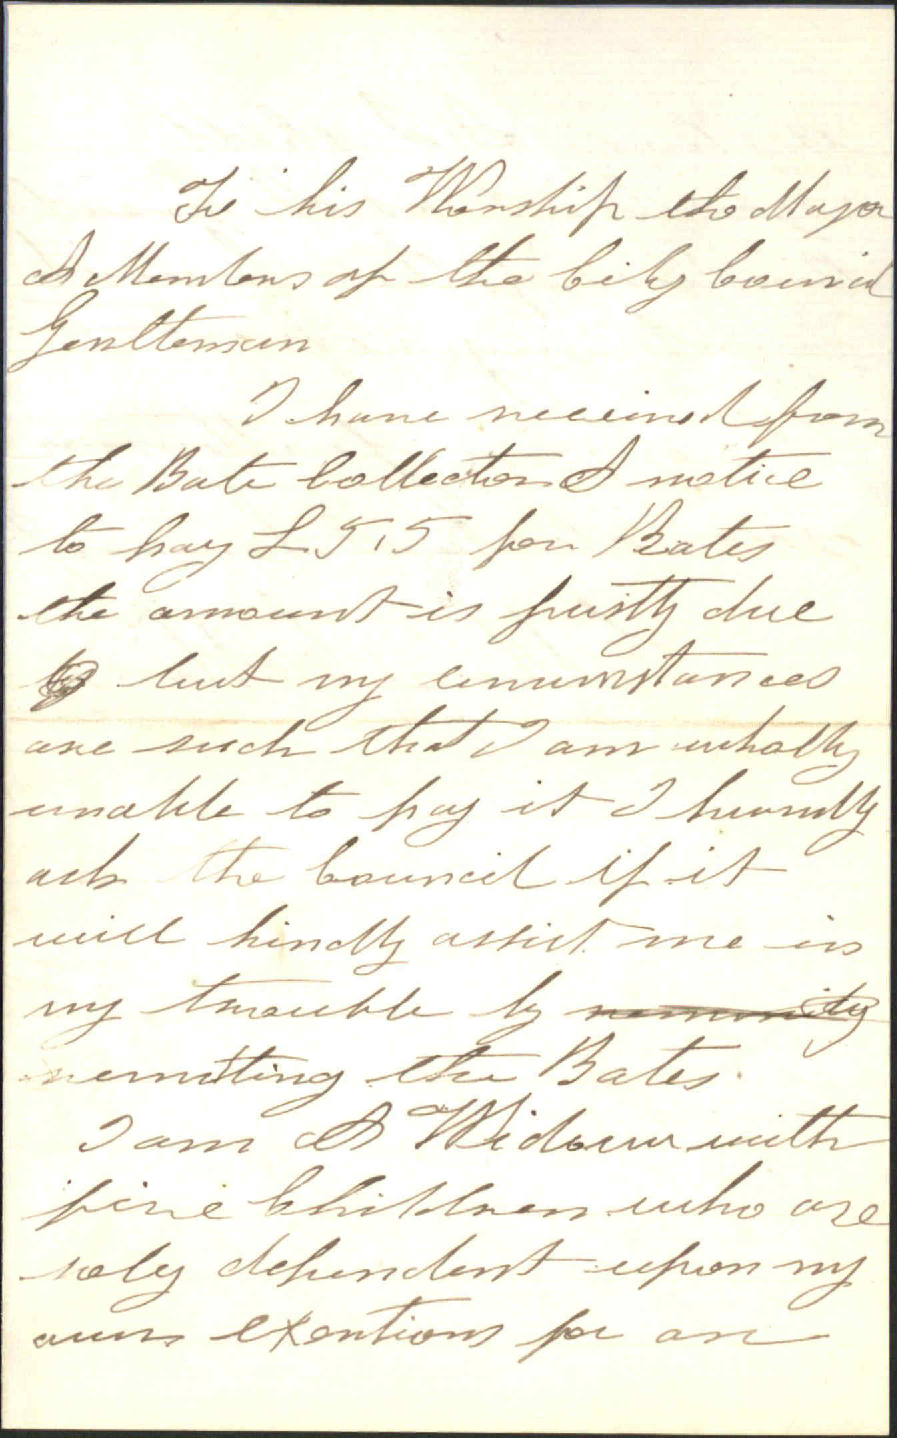 To his Worship the Mayor
& Members of the City Council
Gentleman
I have received from
the Rate Collector A notice
to pay £5.5 for Rates
the amount is justly due
but my circumstances
are such that I am wholly
unable to pay it I humbly
ask the Council if it
will kindly assist me in
my trouble by
remitting the Rates.
I am A Widow with
five Children who are
soley dependent upon my
own exertions for an